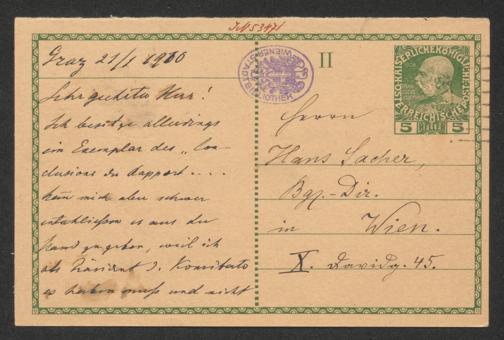 J.N 53471
Graz 21/1 1910
Sehr geehrter Herr!
Ich besitze allerdings
ein Exemplar des „Con-
clusions du Rapport ....
kann mich aber schwer
entschließen es aus der
Hand zu geben, weil ich
als Präsident d. Komitees
es haben muß und nicht
II
WIENER STADTBIBLIOTHEK
KAISERLICHEKÖNIGLICHE
ÖSTERREICHISCHE
5 HELLER 5
Herrn
Hans Sacher,
Bgz.-Dir.
in Wien.
X. Davidg. 45.